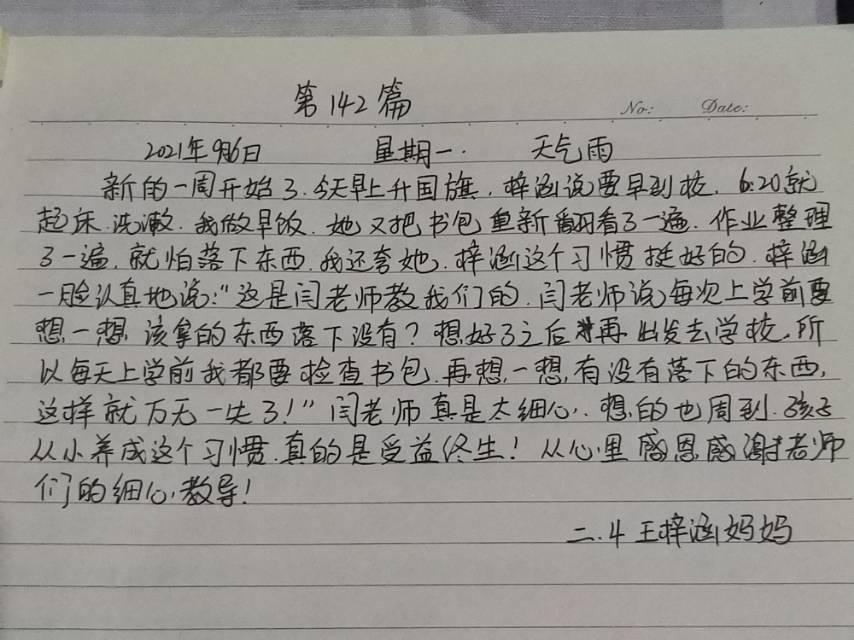 第142篇
No: Date:
2021年9月6日 星期一. 天气雨
新的一周开始了.今天早上升国旗,梓涵说要早到校.6:20就
起床.洗漱.我做早饭.她又把书包重新翻看了一遍.作业整理
了一遍,就怕落下东西.我还夸她.梓涵这个习惯挺好的.梓涵
一脸认真地说:“这是闫老师教我们的.闫老师说每次上学前要
想一想,该拿的东西落下没有?想好了之后再出发去学校.所
以每天上学前我都要检查书包.再想一想,有没有落下的东西,
这样就万无一失了!”闫老师真是太细心.想的也周到.孩子
从小养成这个习惯.真的是受益终生!从心里感恩感谢老师
们的细心教导!
二.4 王梓涵妈妈